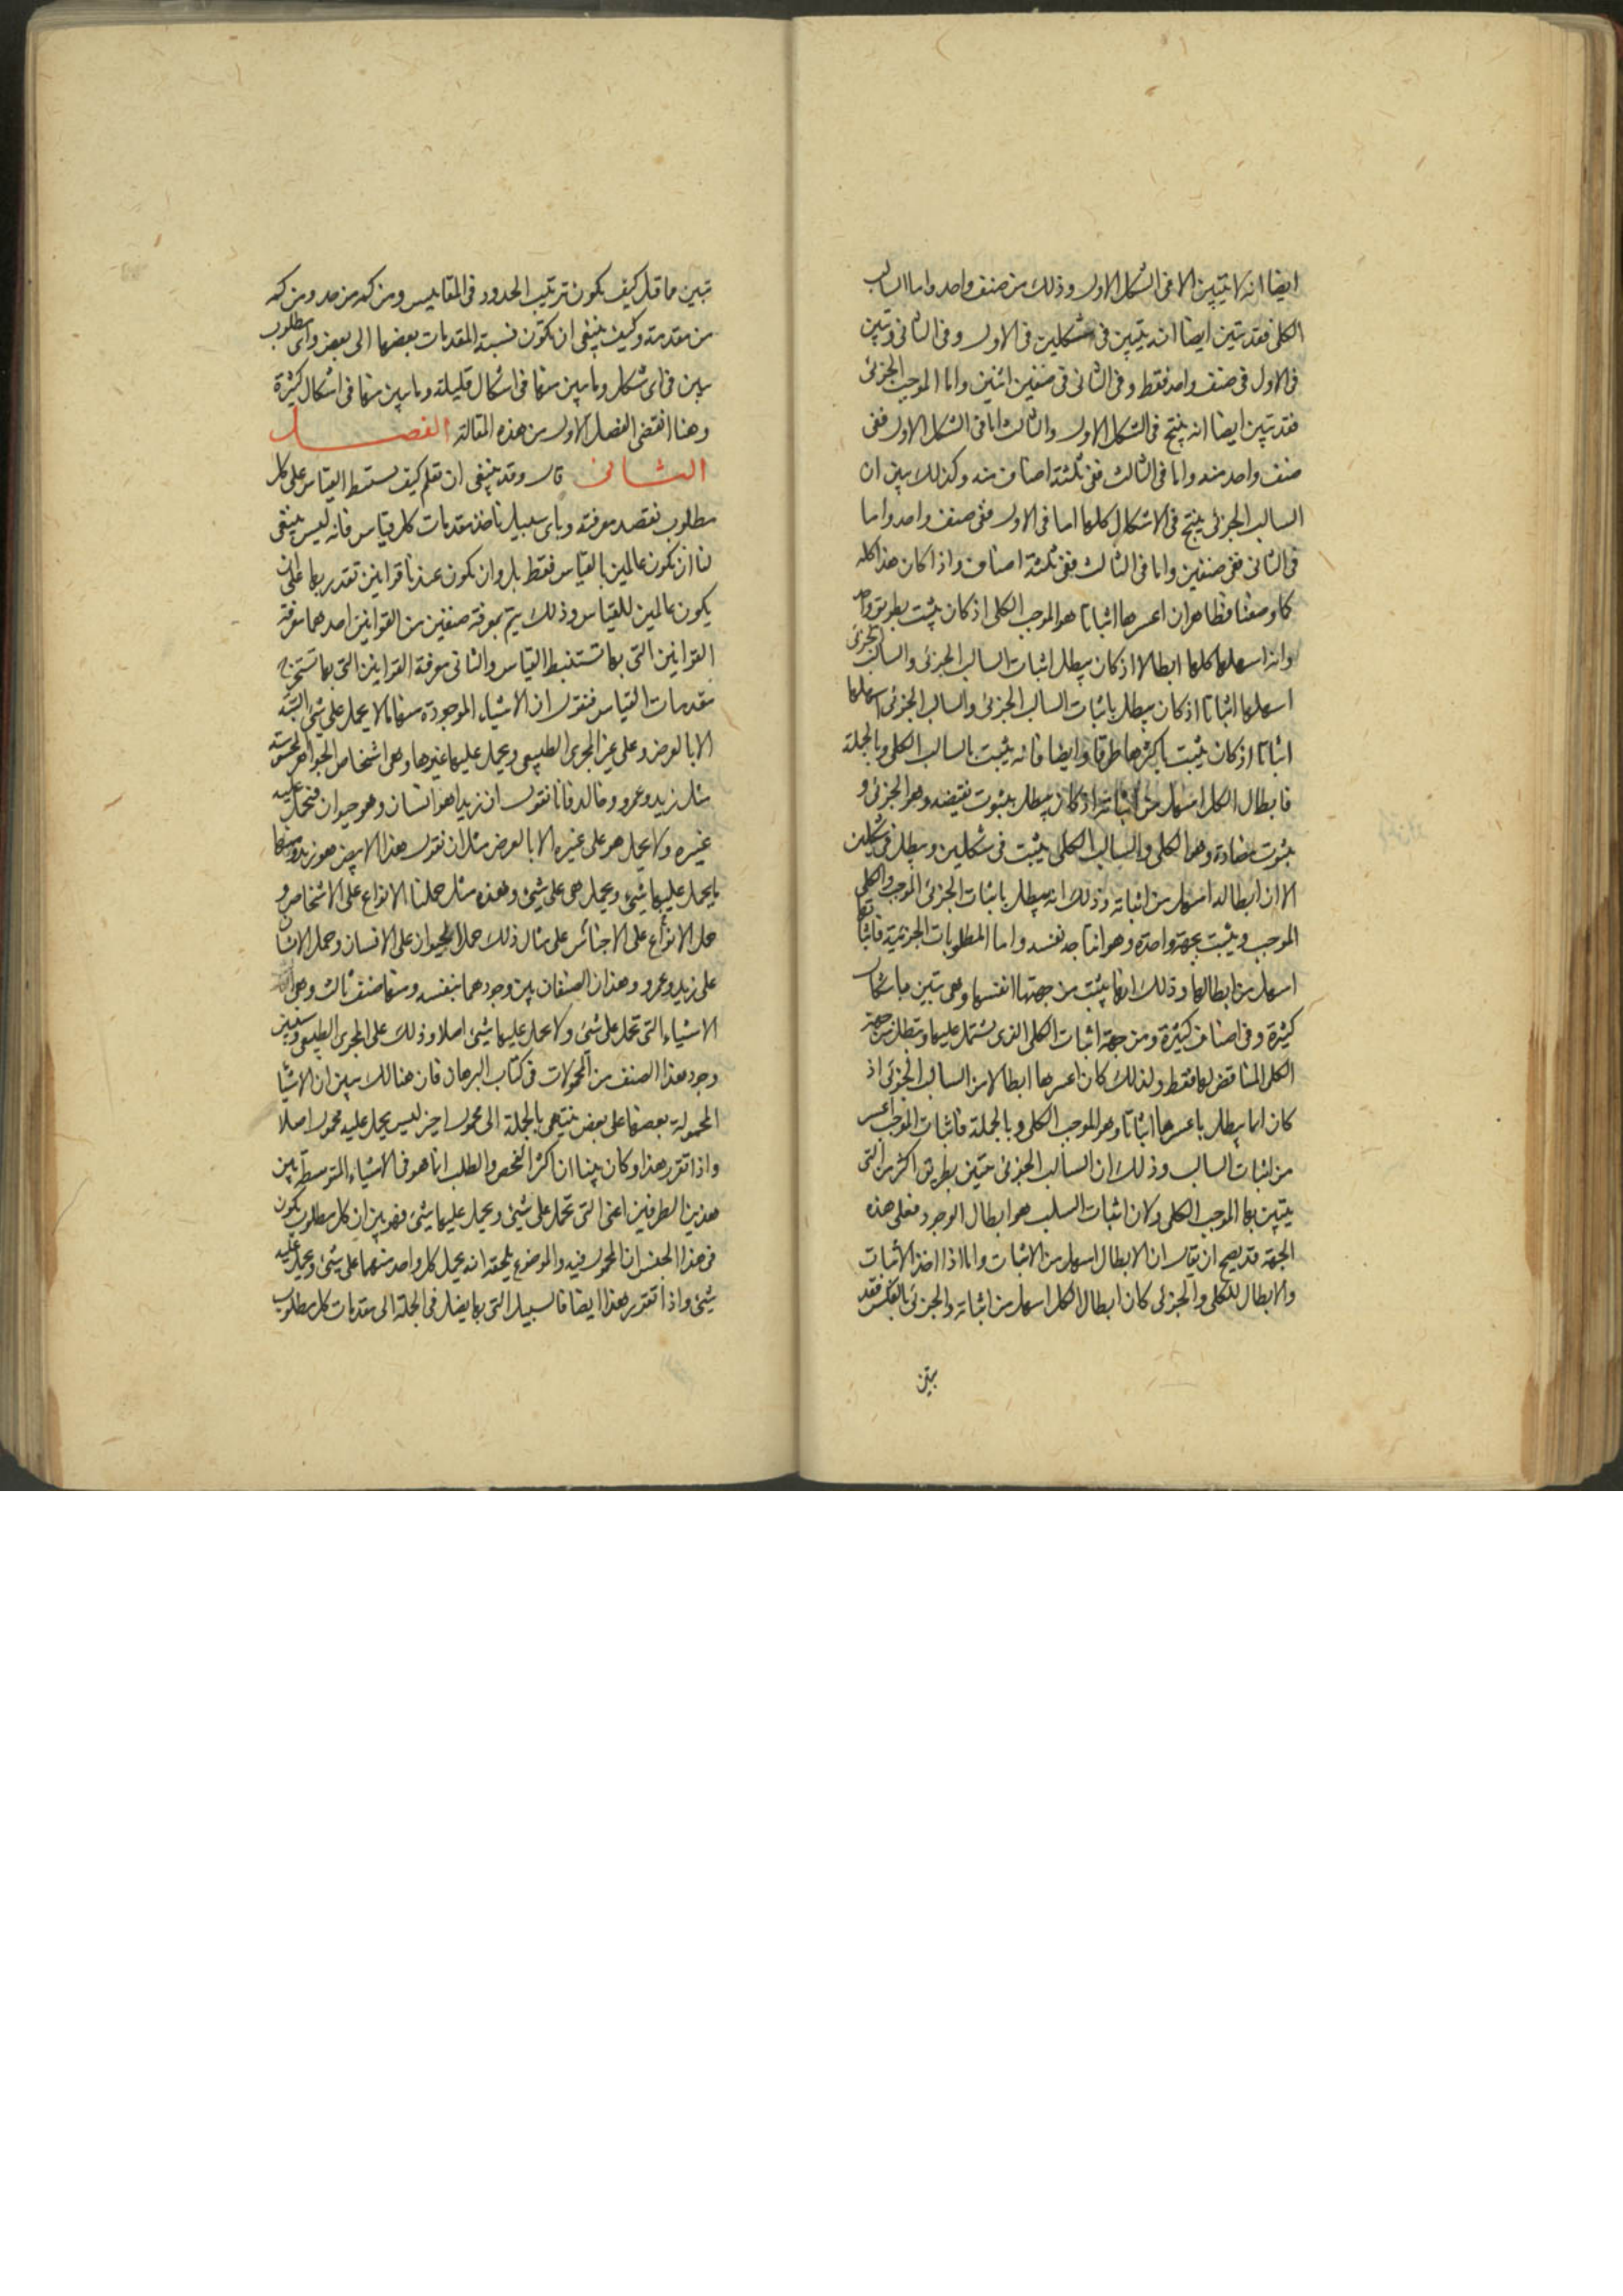 ايضا انه لا يتبين الا فى الشكل الاول وذلك من صنف واحد واما السالب
الكلى فقد تبين ايضا انه يتبين فى شكلين فى الاول وفى الثانى وتبين
فى الاول فى صنف واحد فقط وفى الثانى فى صنفين اثنين واما الموجب الجزئى
فقد تبين ايضا انه ينتج فى الشكل الاول والثالث اما فى الشكل الاول ففى
صنف واحد منه واما فى الثالث ففى ثلثة اصناف منه وكذلك بين ان
السالب الجزئى ينتج فى الاشكال كلها اما فى الاول ففى صنف واحد واما
فى الثانى ففى صنفين واما فى الثالث ففى ثلثة اصناف واذا كان هذا كله
كما وصفنا فظاهر ان اعسرها اثباتا هو الموجب الكلى اذ كان يثبت بطريق واحد
وانه اسهلها كلها ابطالا اذ كان يبطل اثبات السالب الجزئى والسالب الجزئى
اسهلها اثباتا اذ كان يبطل باثبات السالب الجزئى والسالب الجزئى اسهلها
اثباتا اذ كان يثبت باكثرها طرقا وايضا فانه يثبت بالسالب الكلى وبالجملة
فابطال الكل اسهل من اثباته اذ كان يبطل بثبوت نقيضه وهو الجزئى و
بثبوت مضاده وهو الكلى والسالب الكلى يثبت فى شكلين ويبطل فى شكلين
الا ان ابطاله اسهل من اثباته وذلك انه يبطل باثبات الجزئى الموجب والكلى
الموجب ويثبت بجهة واحدة وهو انتاجه نفسه واما المطلوبات الجزئية فاثباتها
اسهل من ابطالها وذلك انها يثبت من جهتها انفسها وهى تتبين باشكال
كثيرة وفى اصناف كثيرة ومن جهة اثبات الكلى الذى يشتمل عليها وتبطل من جهة
الكلى المناقض لها فقط ولذلك كان اعسرها ابطالا من السالب الجزئى اذ
كان انما يبطل باعسرها اثباتا وهو الموجب الكلى وبالجملة فاثبات الموجب اعسر
من اثبات السالب وذلك ان السالب الجزئى يتبين بطريق اكثر من التى
يتبين بها الموجب الكلى ولان اثبات السلب هو ابطال الوجود فعلى هذه
الجهة قد يصح ان يقال ان الابطال اسهل من الاثبات واما اذا اخذ الاثبات
والابطال للكلى والجزئى كان ابطال الكل اسهل من اثباته والجزئى بالعكس فقد
تبين
تبين ما قيل كيف يكون ترتيب الحدود فى المقاييس ومن كم من حد ومن كم
من مقدمة وكيف ينبغى ان يكون نسبة المقدمات بعضها الى بعض واى مطلوب
يبين فى اى شكل وما يبين منها فى اشكال قليلة وما يبين منها فى اشكال كثيرة
وهنا انقضى الفصل الاول من هذه المقالة الفصل
الثانى قال وقد ينبغى ان نعلم كيف نستنبط القياس على كل
مطلوب نقصد معرفته وباى سبيل ناخذ مقدمات كل قياس فانه ليس ينبغى
لنا ان نكون عالمين بالقياس فقط بل وان يكون عندنا قوانين نقدر بها على ان
يكون عالمين للقياس وذلك يتم بمعرفة صنفين من القوانين احدهما معرفة
القوانين التى بها تستنبط القياس والثانى معرفة القوانين التى بها تستخرج
مقدمات القياس فنقول ان الاشياء الموجودة منها ما لا يحمل على شئ البتة
الا بالعرض وعلى غير المجرى الطبيعى ويحمل عليها غيرها وهى اشخاص الجواهر المحسوسة
مثل زيد وعمرو وخالد فانا نقول ان زيدا هو انسان وهو حيوان فنحمل عليه
غيره ولا يحمل هو على غيره الا بالعرض مثل ان نقول هذا الابيض هو زيد ومنها
ما يحمل عليها شئ ويحمل هى على شئ وهذه مثل حملنا الانواع على الاشخاص و
حمل الانواع على الاجناس على مثال ذلك حملا الحيوان على الانسان وحمل الانسان
على زيد وعمرو وهذان الصنفان بين وجودهما بنفسه ومنها صنف ثالث وهى
الاشياء التى تحمل على شئ ولا يحمل عليها شئ اصلا وذلك على المجرى الطبيعى وسنبين
وجود هذا الصنف من المحمولات فى كتاب البرهان فان هنالك يبين ان الاشيا
المحمولة بعضها على بعض ينتهى بالجملة الى محمول اخير ليس يحمل عليه محمول اصلا
واذا تقرر هذا وكان بينا ان اكثر الفحص والطلب انما هو فى الاشياء المتوسطة بين
هذين الطرفين اعنى التى تحمل على شئ ويحمل عليها شئ فهو بين ان كل مطلوب يكون
فى هذا الجنس ان المحمول فيه والموضوع يلحقه انه يحمل كل واحد منهما على شئ ويحمل عليه
شئ واذا تقرر هذا ايضا فالسبيل التى بها يصل فى الجملة الى مقدمات كل مطلوب